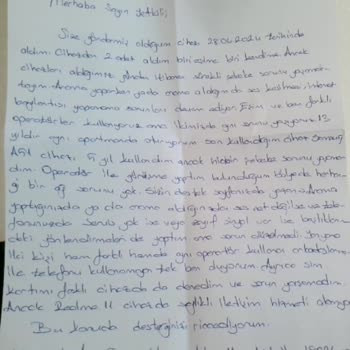 Merhaba Sayın Yetkili;
Size göndermiş olduğum cihaz 28.04.2024 tarihinde
aldım. Cihazdan 2 adet aldım biri eşime biri kendime. Ancak
cihazları aldığımız günden itibaren sürekli şebeke sorunu yaşamak-
tayız. Arama yaparken yada arama aldığımda ses kesilmesi, internet
bağlantısı yapamama sorunları devam ediyor. Eşim ve ben farklı
operatörler kullanıyoruz ama ikimizde aynı sorunu yaşıyoruz. 13
yıldır aynı apartmanda oturuyorum son kullandığım cihaz Samsung
A51 cihazı 5 yıl kullandım ancak böyle şebeke sorunu yaşama-
dım. Operatör ile görüşme yaptım bulunduğum bölgede herhan-
gi bir ağ sorunu yok. Sizin destek sayfanızda yazan Arama
yaptığınızda ya da arama aldığınızda ses net değilse ve tele-
fonunuzda servis yok ise veya zayıf sinyal var ise başlıkla-
daki yönlendirmeleri de yaptım ama sorun çözülmedi.
iki kişi hem farklı hemde aynı operatör kullanan arkadaşları-
telefonu kullanamayan tek ben duyuyorum Ayrıca sim
kartımı farklı cihazda da denedim ve sorun yaşamadım.
Ancak Realme 11 cihazda sağlıklı iletişim hizmeti alamıyo
Bu konuda desteğinizi rica ediyorum.